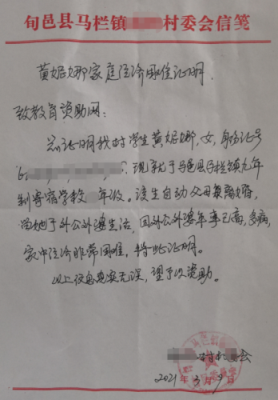 旬邑县马栏镇 村委会信笺
黄妮娜家庭经济困难证明
致教育资助网：
兹证明我村学生黄妮娜，女，身份证号
现就于马邑县马栏镇九年
制寄宿学校 年级。该生自幼父母离异后，
由她于外公外婆生活，因外公外婆年事已高，多病，
家中经济非常困难，特此证明。
以上信息真实无误，望予以资助。
村村委会
2021年3月9日